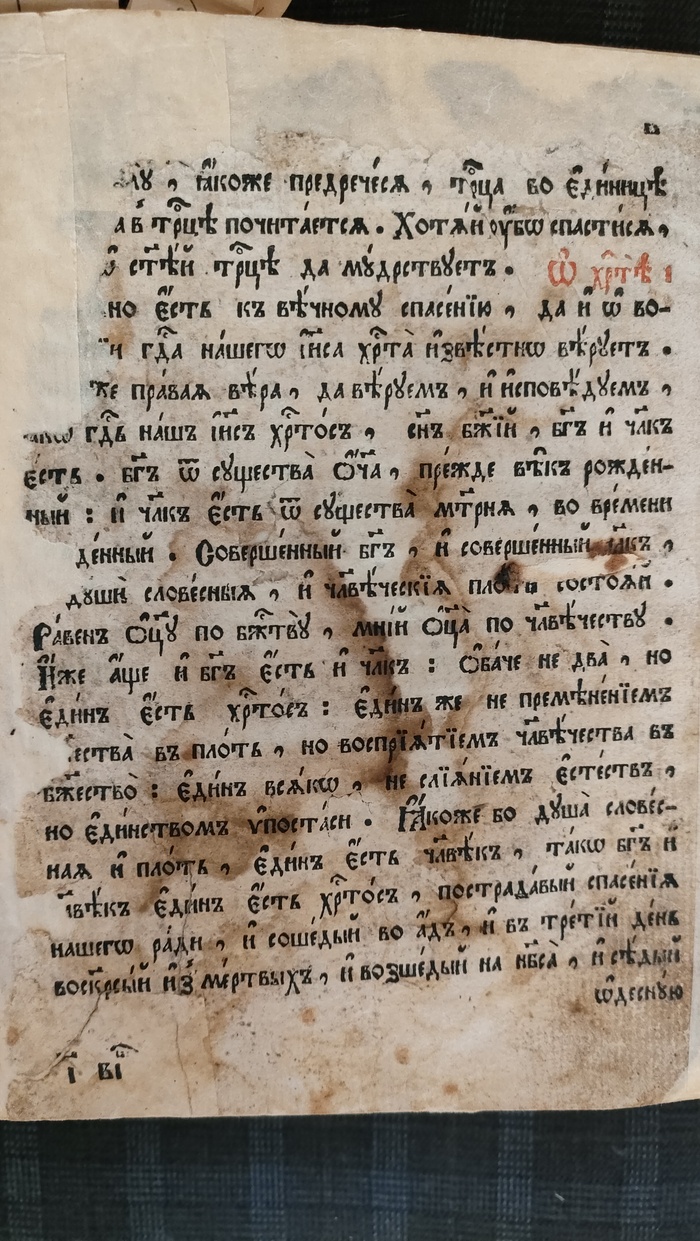 в
ꙗ҆́коже предрече́сѧ , трⷪ҇ца во є҆ди́ницѣ
а в̾ трⷪ҇цѣ почита́етсѧ . Хотѧ́й ᲂу҆́бѡ спасти́сѧ ,
ѡ҆ ст҃ѣ́й трⷪ҇цѣ да мꙋ́дрствꙋетъ . Ѡ҆ хрⷭ҇тѣ̀
но є҆́сть къ вѣ́чномꙋ спасе́нїю , да и҆ ѡ҆ во-
гдⷭ҇а на́шегѡ і҆и҃са хрⷭ҇та̀ и҆звѣ́стнѡ вѣ́рꙋетъ .
же пра́ваѧ вѣ́ра , да вѣ́рꙋемъ , и҆ и҆сповѣ́дꙋемъ ,
гдⷭ҇ь на́шъ і҆и҃съ хрⷭ҇то́съ , сн҃ъ бж҃їй , бг҃ъ и҆ чл҃къ
є҆́сть . бг҃ъ ѿ сꙋщества̀ ѻ҆́ч҃а , пре́жде вѣ̑къ рожде́н-
ный : и҆ чл҃къ є҆́сть ѿ сꙋщества̀ мт҃рнѧ , во вре́мени
де́нный . Соверше́нный бг҃ъ , и҆ соверше́нный чл҃къ ,
дꙋшѝ слове́сныѧ , и҆ чл҃вѣ́ческїѧ пло́ти состоѧ́й .
Ра́венъ ѻ҆ц҃ꙋ̀ по бжⷭ҇твꙋ̀ , мні́й ѻ҆ц҃а̀ по чл҃вѣ́чествꙋ .
И҆́же а҆́ще и҆ бг҃ъ є҆́сть и҆ чл҃къ : ѻ҆ба́че не два̀ , но
є҆ди́нъ є҆́сть хрⷭ҇то́съ : є҆ди́нъ же не премѣне́нїемъ
ества̀ въ пло́ть , но воспрїѧ́тїемъ чл҃вѣ́чества въ
бж҃ество̀ : є҆ди́нъ всѧ́кѡ , не слїѧ́нїемъ є҆сте́ствъ ,
но є҆ди́нствомъ ѵ҆поста́си . Ꙗ҆́коже бо дꙋша̀ слове́с-
наѧ и҆ пло́ть , є҆ди́нъ є҆́сть чл҃вѣ́къ , та́кѡ бг҃ъ и҆
вѣ́къ є҆ди́нъ є҆́сть хрⷭ҇то́съ , пострада́вый спасе́нїѧ
на́шегѡ ра́ди , и҆ соше́дый во а҆́дъ , и҆ въ тре́тїй де́нь
воскр҃сы́й и҆з̾ ме́ртвыхъ , и҆ возше́дый на нб҃са̀ , и҆ сѣ́дый
ѡ҆деснꙋ́ю
і҃ ві҃